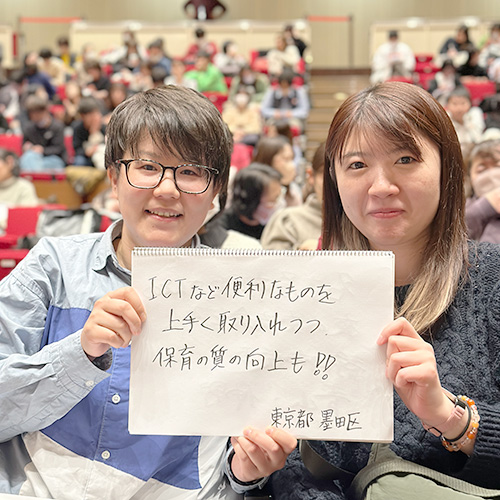 ICTなど便利なものを
上手く取り入れつつ、
保育の質の向上も!!
東京都 墨田区